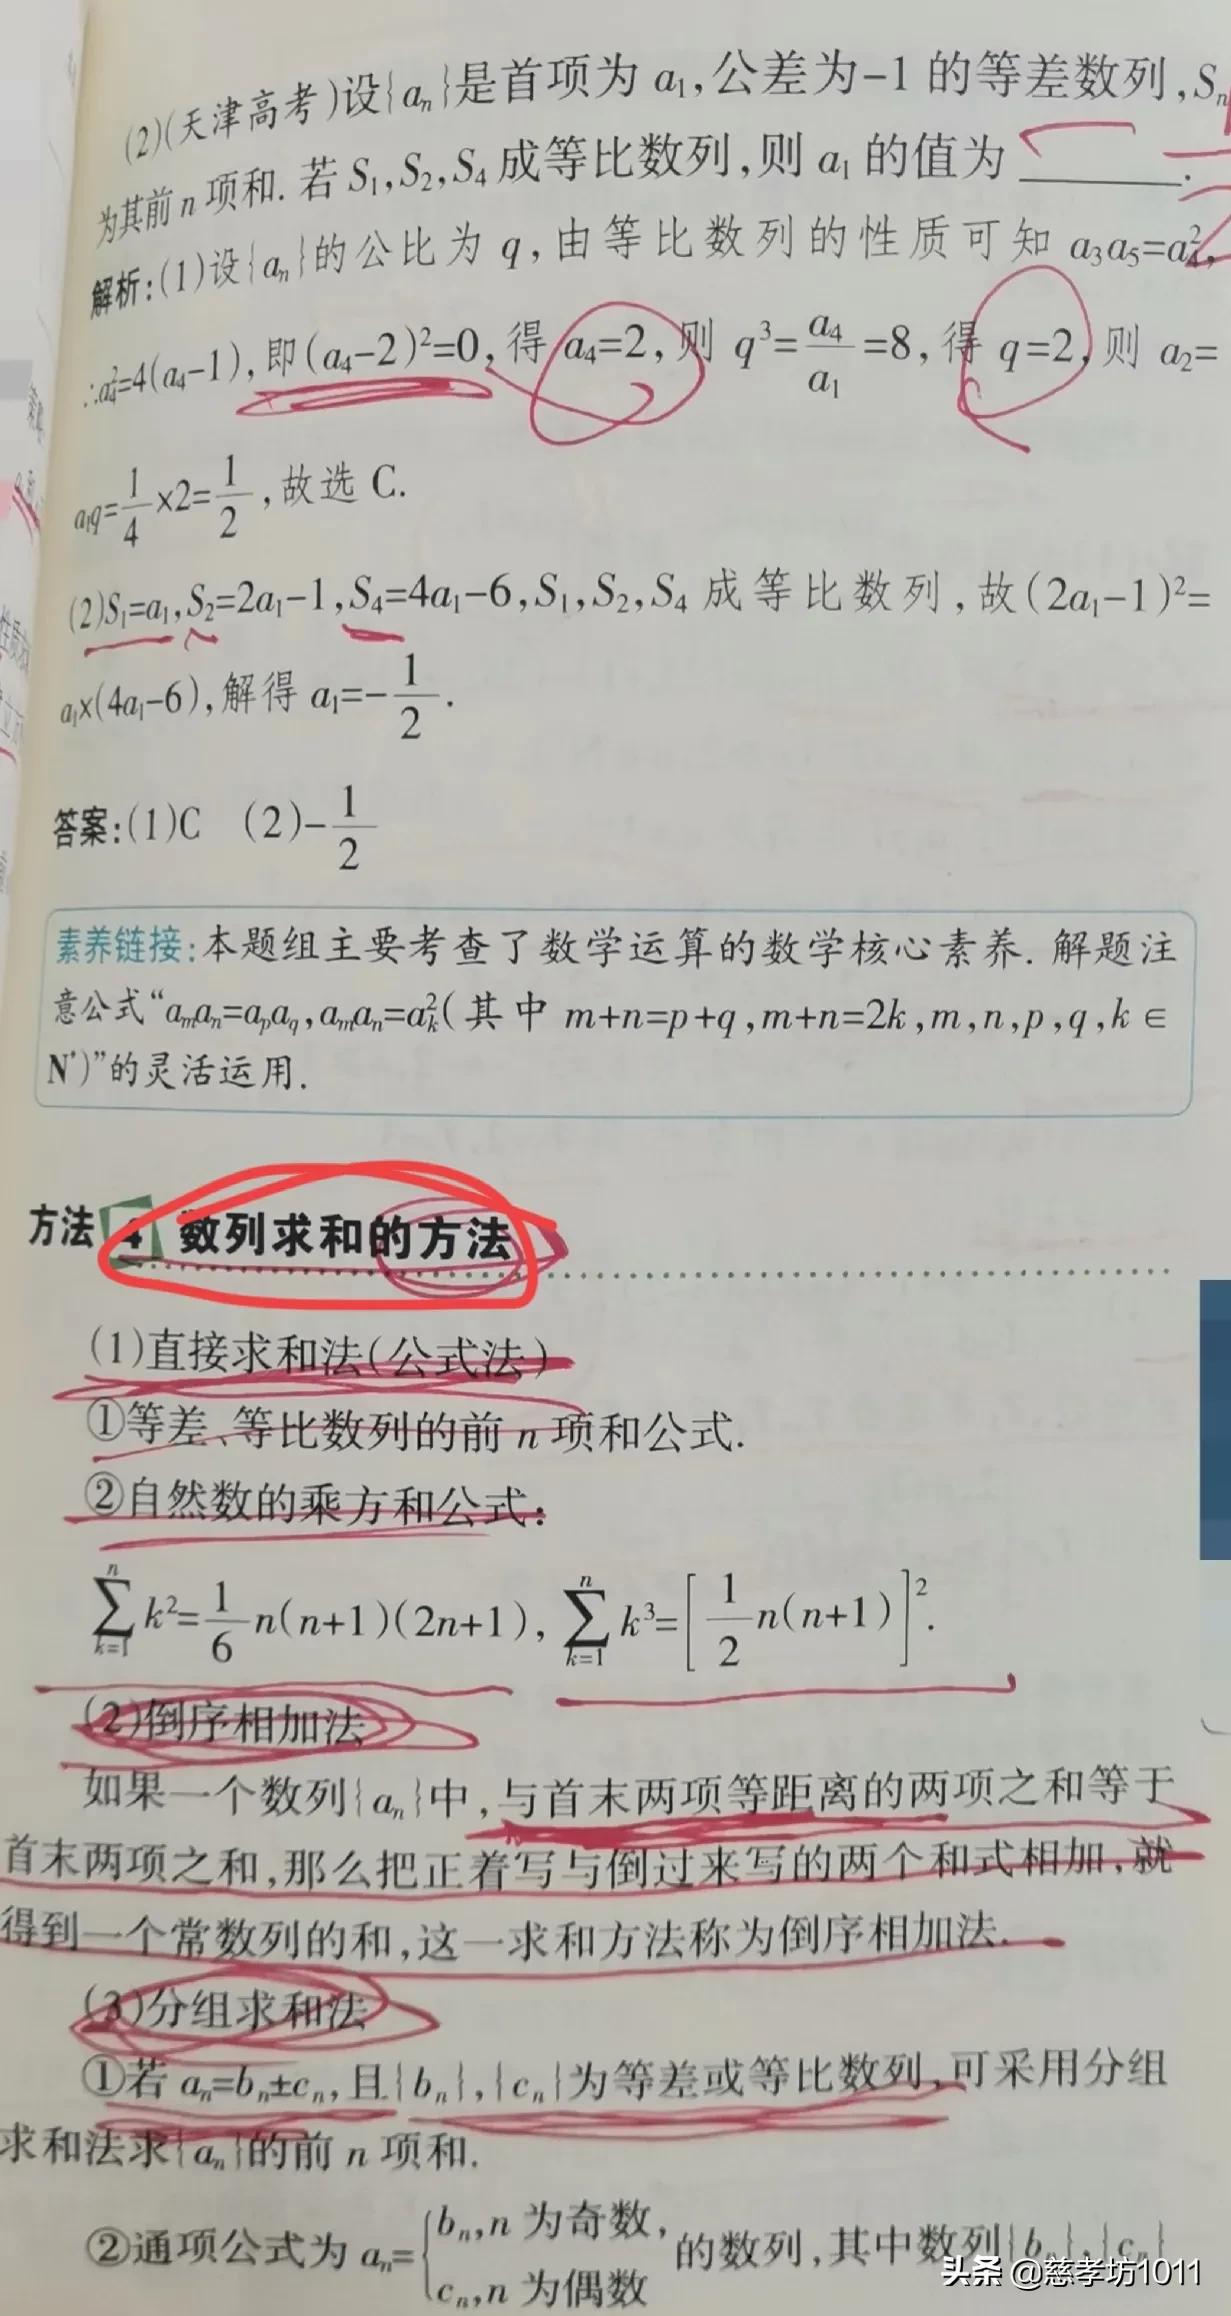 (2)(天津高考)设{aₙ}是首项为 a₁,公差为-1 的等差数列,Sₙ
为其前 n 项和. 若 S₁,S₂,S₄ 成等比数列,则 a₁ 的值为 ______.
解析:(1)设{aₙ}的公比为 q,由等比数列的性质可知 a₃a₅=a₄²,
∴a₄²=4(a₄-1),即(a₄-2)²=0,得 a₄=2,则 q³=a₄/a₁=8,得 q=2,则 a₂=
a₁q=1/4×2=1/2,故选 C.
(2)S₁=a₁,S₂=2a₁-1,S₄=4a₁-6,S₁,S₂,S₄ 成等比数列,故(2a₁-1)²=
a₁×(4a₁-6),解得 a₁=-1/2.
答案:(1)C (2)-1/2
素养链接:本题组主要考查了数学运算的数学核心素养. 解题注
意公式“aₘaₙ=aₚa_q,aₘaₙ=aₖ²(其中 m+n=p+q,m+n=2k,m,n,p,q,k∈
N*)”的灵活运用.
方法 4 数列求和的方法
(1)直接求和法(公式法)
①等差、等比数列的前 n 项和公式.
②自然数的乘方和公式:
∑_{k=1}^{n} k²=1/6 n(n+1)(2n+1), ∑_{k=1}^{n} k³=[1/2 n(n+1)]².
(2)倒序相加法
如果一个数列{aₙ}中,与首末两项等距离的两项之和等于
首末两项之和,那么把正着写与倒过来写的两个和式相加,就
得到一个常数列的和,这一求和方法称为倒序相加法.
(3)分组求和法
①若 aₙ=bₙ±cₙ,且{bₙ},{cₙ}为等差或等比数列,可采用分组
求和法求{aₙ}的前 n 项和.
②通项公式为 aₙ={bₙ,n 为奇数, cₙ,n 为偶数 的数列,其中数列{bₙ},{cₙ}
头条 @慈孝坊1011